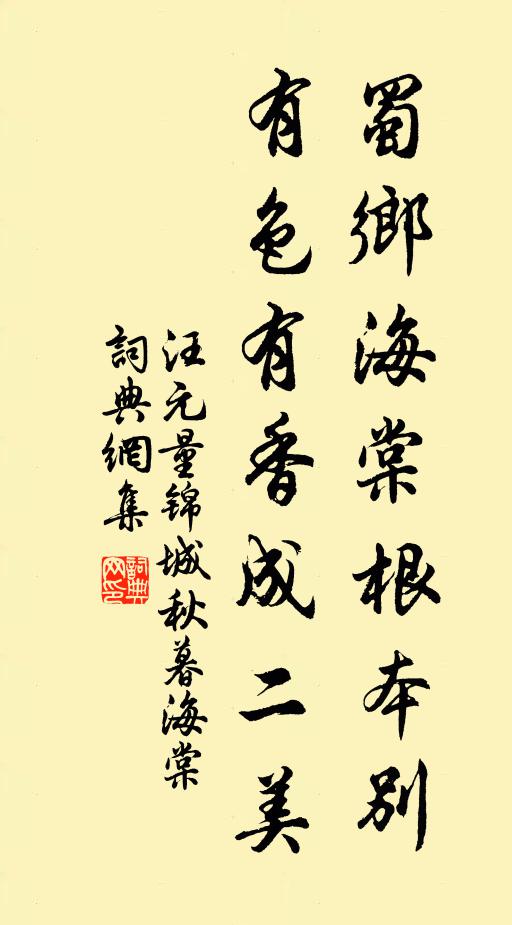 蜀鄉海棠根本別
有色有香成二美
汪元量錦城秋暮海棠
詞典網集
詞典网印